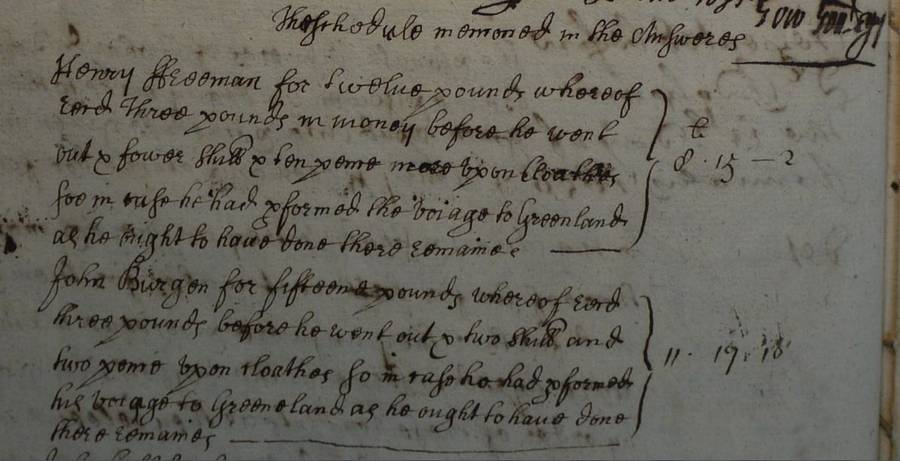 The schedule menconed in the Answeres
Henry ffreeman for twelve pounds whereof
recd three pounds in money before he went
out & fower shills & ten pence more vpon cloathes
soe in case he had pformed the voiage to Greenland
as he ought to have done there remaines
li
8 . 15 — 2
John Burgen for fifteene pounds whereof recd
three pounds before he went out & two shills and
two pence vpon cloathes so in case he had pformed
his voiage to Greeneland as he ought to have done
there remaines
11 . 17 . 10